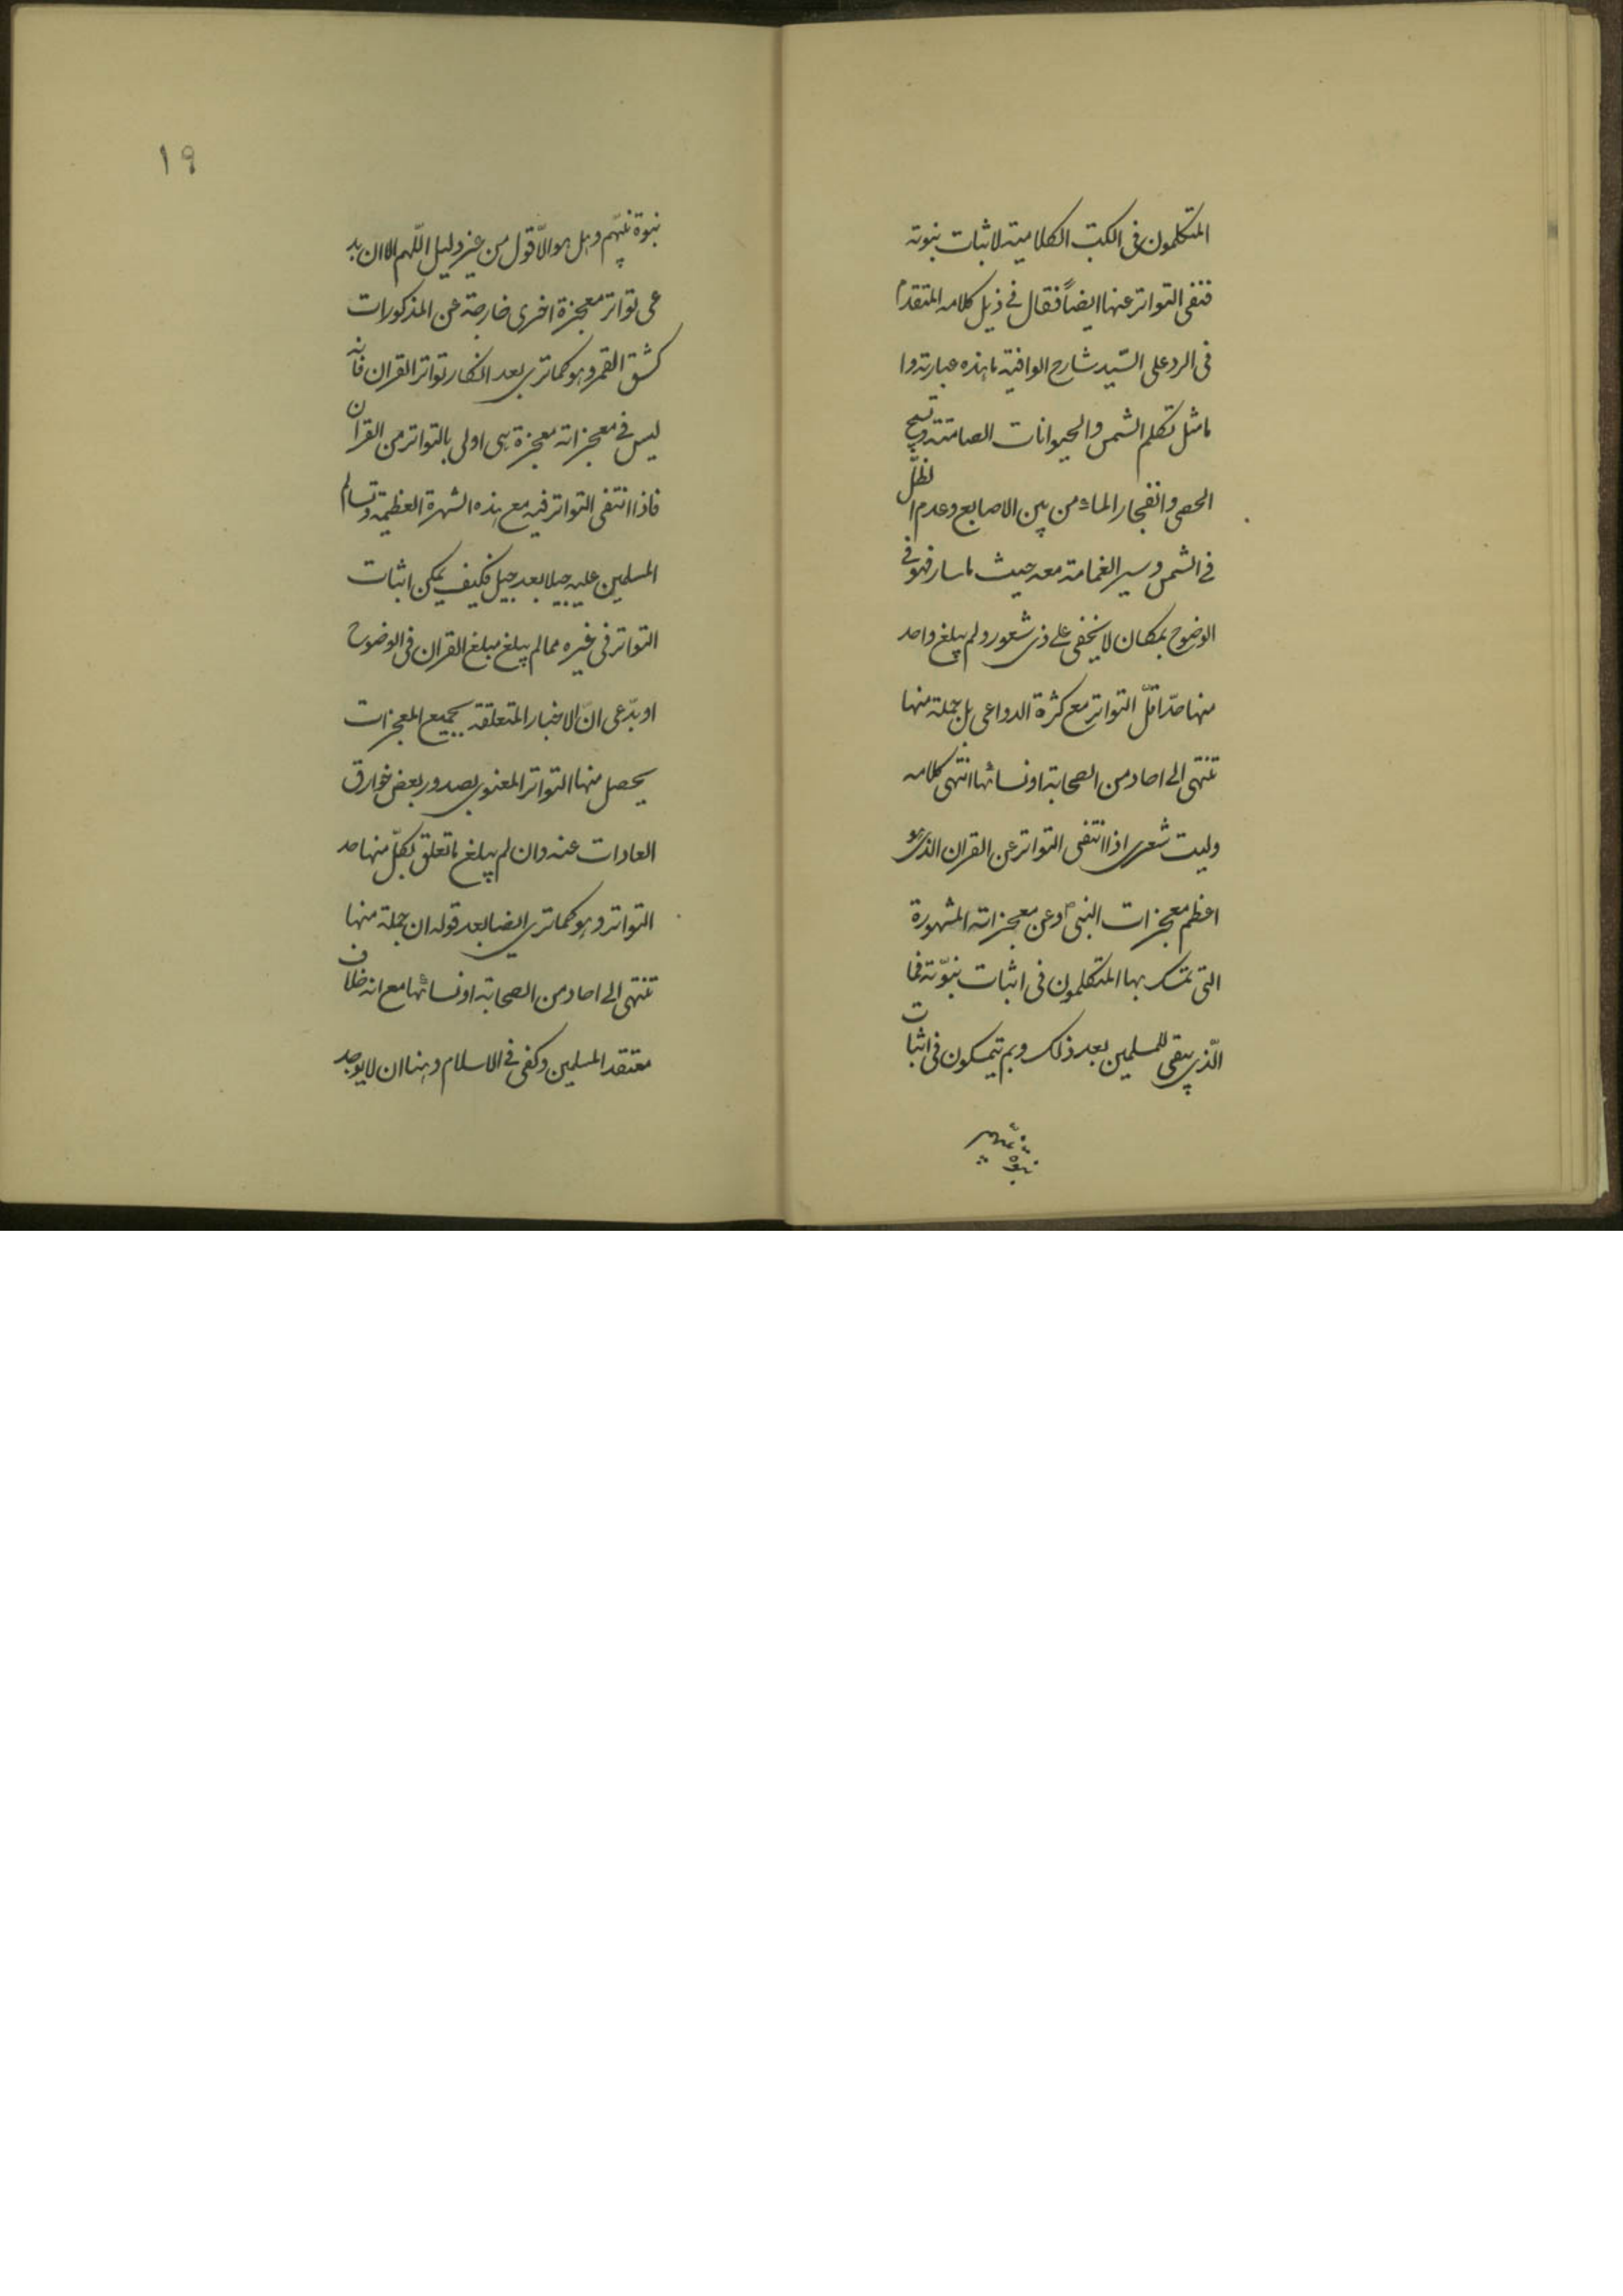 المتكلمون فى الكتب الكلامية لاثبات نبوته
فنفى التواتر عنها ايضاً فقال فى ذيل كلامه المتقدم
فى الرد على السّيد شارح الوافية ما هذه عبارته وا
ما مثل تكلم الشمس والحيوانات الصامتة وتسبيح
الحصى وانفجار الماء من بين الاصابع وعدم الظلّ
فى الشمس وسير الغمامة معه حيث ما سار فهو فى
الوضوح بمكان لا يخفى على ذى شعور ولم يبلغ واحد
منها حدّ اقلّ التواتر مع كثرة الدواعى بل جملة منها
تنتهى الى احاد من الصحابة او نسائها انتهى كلامه
وليت شعرى اذا انتفى التواتر عن القران الذى هو
اعظم معجزات النبى ص وعن معجزاته المشهورة
التى تمسك بها المتكلمون فى اثبات نبوّته فما
الّذى يبقى للمسلمين بعد ذلك وبم يتمسكون فى اثبات
نبوة نبيّهم
١٩
نبوة نبيّهم وهل هو الاّ قول من غير دليل اللّهم الا ان يد
عى تواتر معجزة اخرى خارجة عن المذكورات
كشق القمر وهو كما ترى بعد انكار تواتر القران فانه
ليس فى معجزاته معجزة هى اولى بالتواتر من القران
فاذا انتفى التواتر فيه مع هذه الشهرة العظيمة وتسالم
المسلمين عليه جيلا بعد جيل فكيف يمكن اثبات
التواتر فى غيره مما لم يبلغ مبلغ القران فى الوضوح
او يدّعى انّ الاخبار المتعلقة بجميع المعجزات
يحصل منها التواتر المعنوى بصدور بعض خوارق
العادات عنه وان لم يبلغ ما تعلق بكلّ منها حد
التواتر وهو كما ترى ايضا بعد قوله ان جملة منها
تنتهى الى احاد من الصحابة او نسائها مع انه خلاف
معتقد المسلمين وكفى فى الاسلام وهنا ان لا يوجد